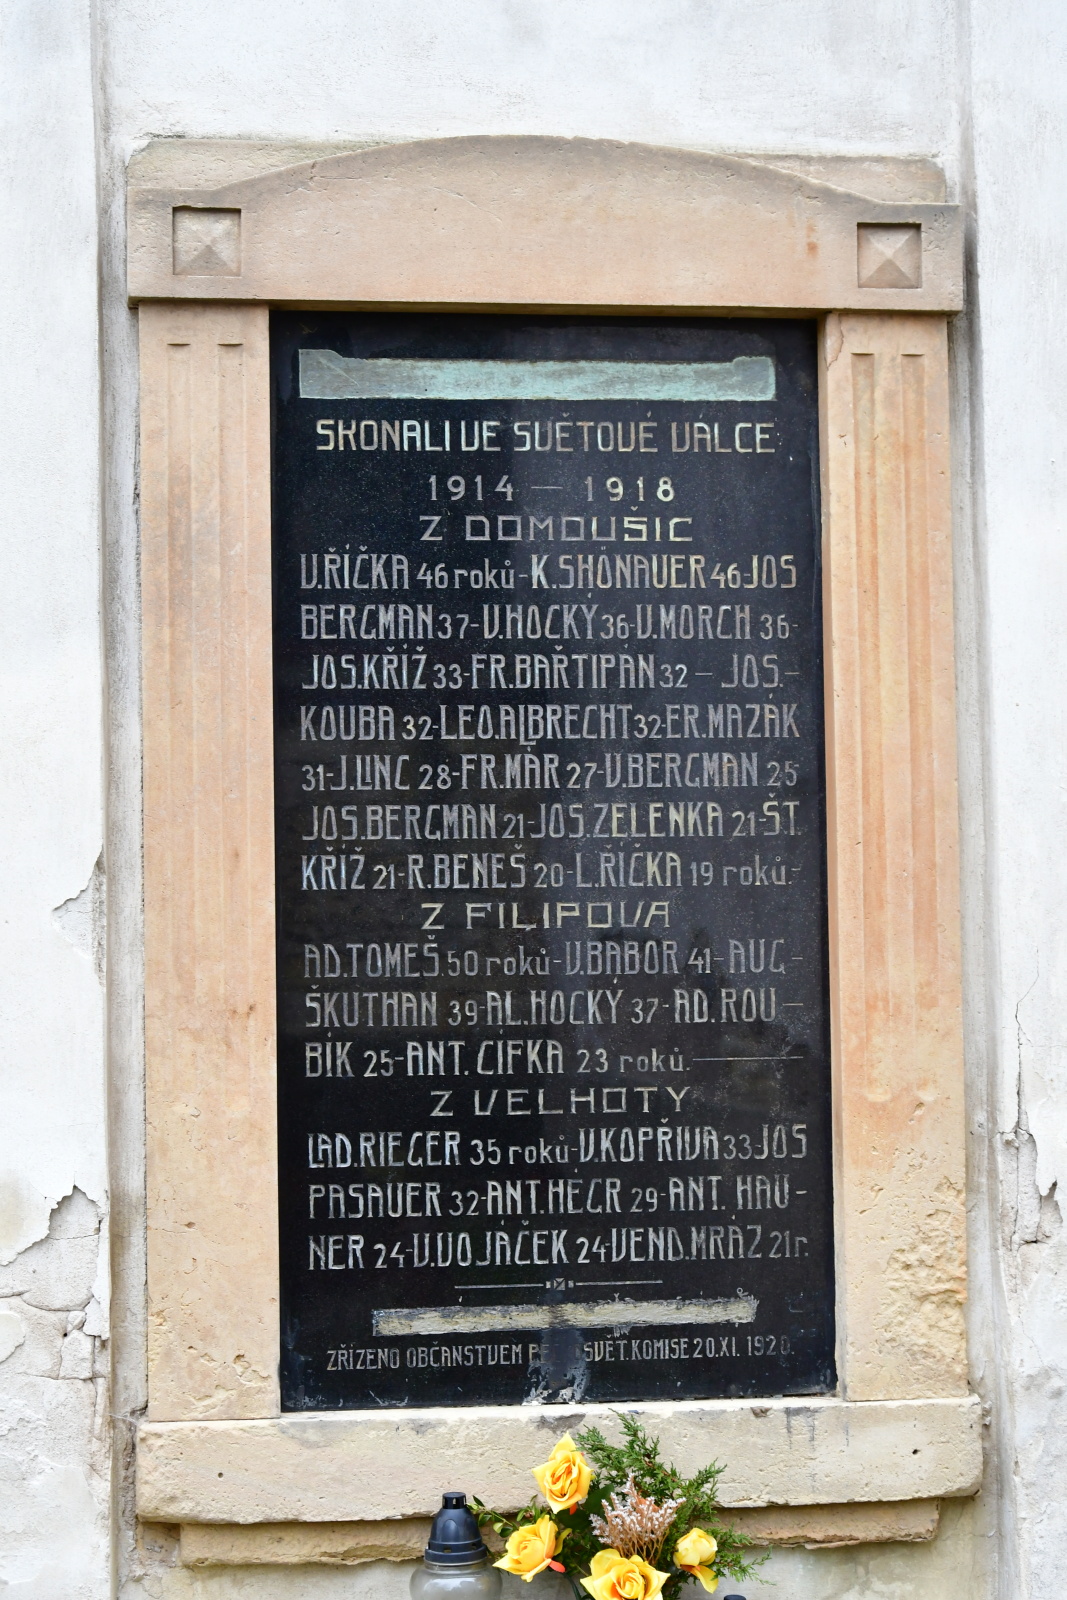 SKONALI VE SVĚTOVÉ VÁLCE
1914 — 1918
Z DOMOUŠIC
V.ŘÍČKA 46 roků-K.SHÖNAUER 46-JOS
BERGMAN 37-V.HOCKÝ 36-V.MORCH 36-
JOS.KŘÍŽ 33-FR.BAŘTIPÁN 32 — JOS.-
KOUBA 32-LEO.ALBRECHT 32-ER.MAZÁK
31-J.LINC 28-FR.MÁR 27-V.BERGMAN 25
JOS.BERGMAN 21-JOS.ZELENKA 21-ŠT.
KŘÍŽ 21-R.BENEŠ 20-L.ŘÍČKA 19 roků.-
Z FILIPOVA
AD.TOMEŠ.50 roků-V.BABOR 41-AUG-
ŠKUTHAN 39-AL.HOCKÝ 37-AD.ROU-
BÍK 25-ANT.CÍFKA 23 roků.—
Z VELHOTY
LAD.RIEGER 35 roků-V.KOPŘIVA 33-JOS
PASAUER 32-ANT.HÉGR 29-ANT. HAU-
NER 24-V.VOJÁČEK 24-VEND.MRÁZ 21r.
ZŘÍZENO OBČANSTVEM SVĚT.KOMISE 20.XI. 1920.